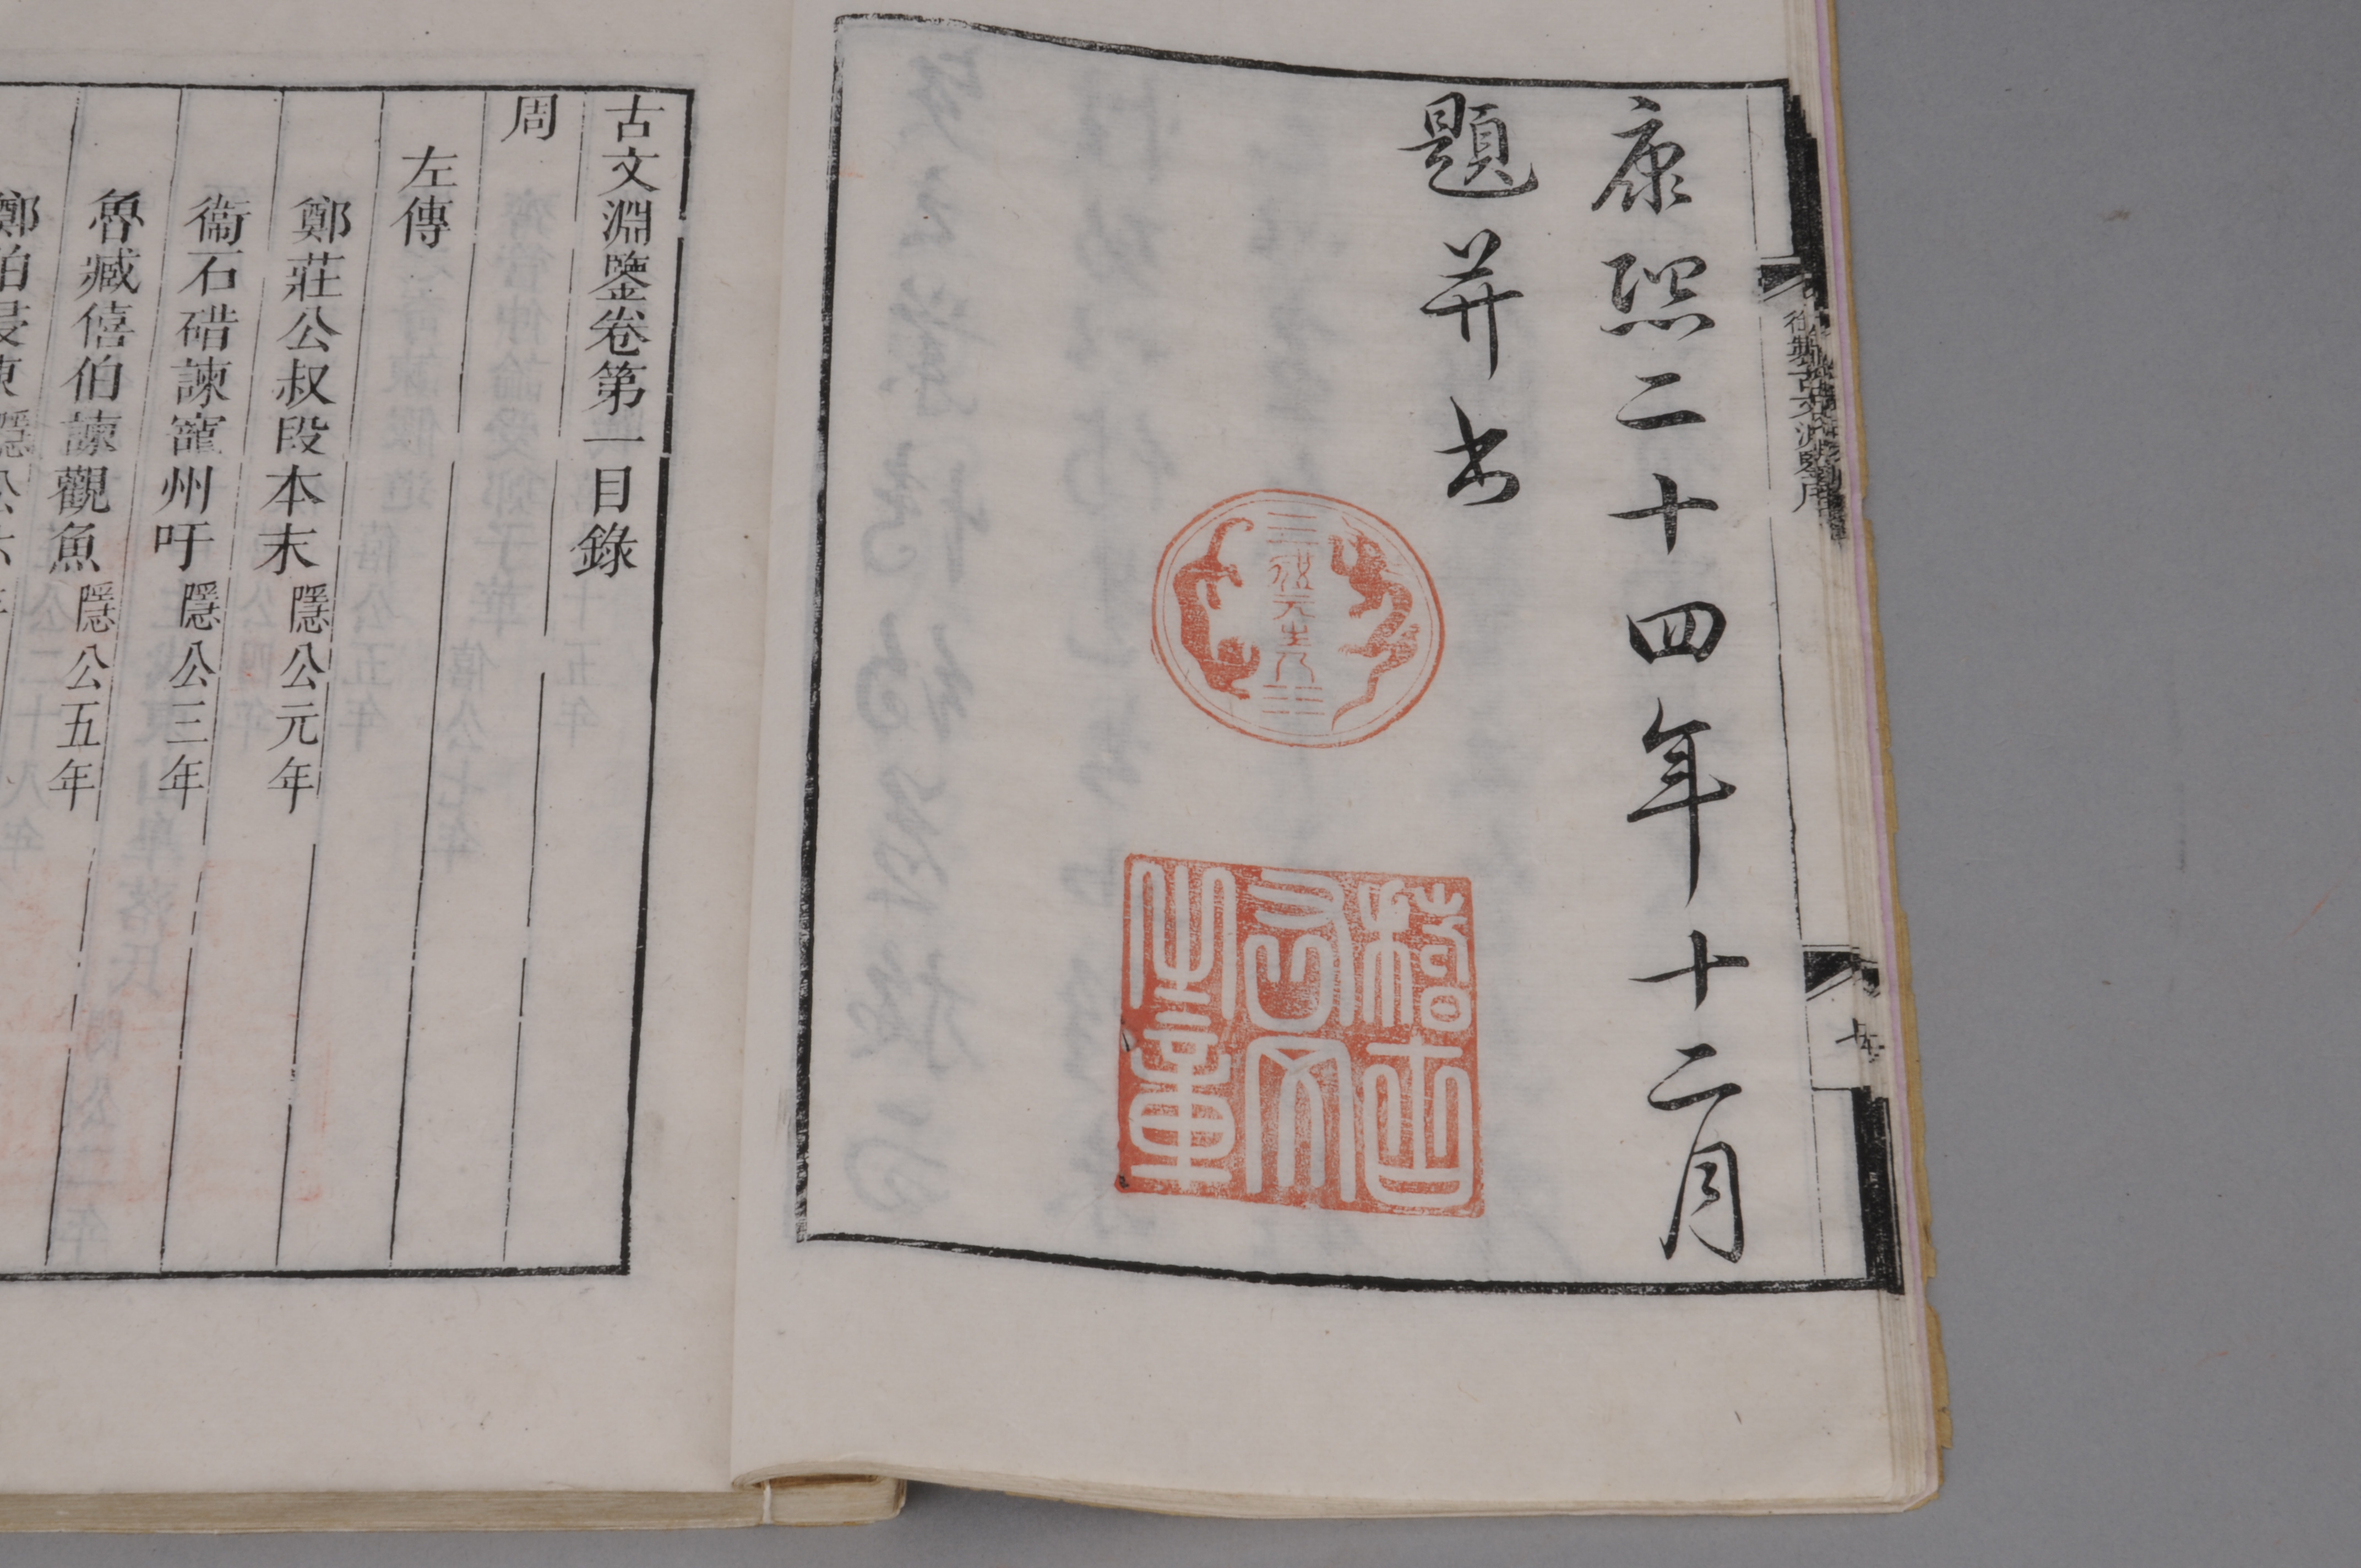 御製古文淵鑒序
康熙二十四年十二月
題并書
體元主人
稽古右文之章
古文淵鑒卷第一目錄
周
左傳
鄭莊公叔段本末 隱公元年
衞石碏諫寵州吁 隱公三年
魯臧僖伯諫觀魚 隱公五年
鄭伯侵陳 隱公六年